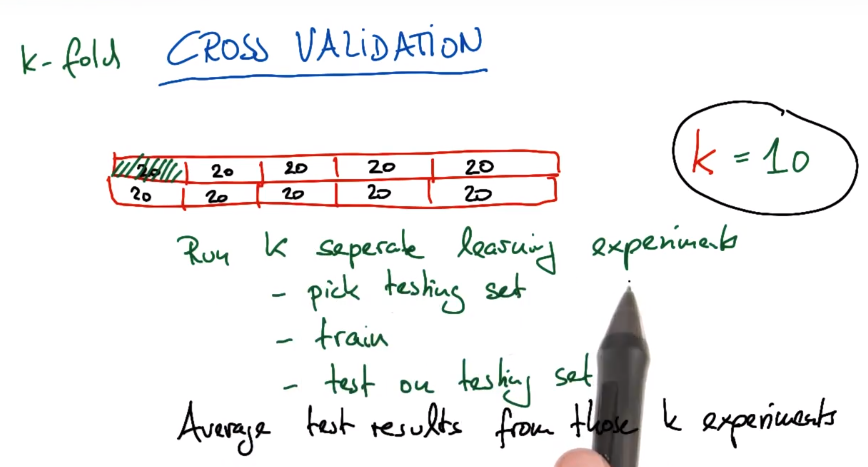 k-fold CROSS VALIDATION
20 20 20 20 20
20 20 20 20 20
k = 10
Run k seperate learning experiments
- pick testing set
- train
- test on testing set
Average test results from those k experiments